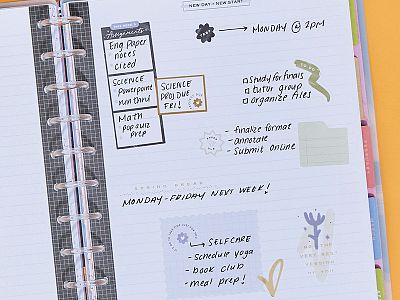 NEW DAY + NEW START
→ MONDAY @ 2PM
Assignments:
Eng Paper
notes
cited
SCIENCE
Powerpoint
run thru
SCIENCE
PROJ DUE
FRI!
Math
Pop quiz
prep
TO DO
Study for finals
tutor group
organize files
- finalize format
- annotate
- submit online
SPRING BREAK
MONDAY - FRIDAY NEXT WEEK!
→ SELFCARE
- schedule yoga
- book club
- meal prep!
BE THE
VERY BEST
VERSION
OF YOU